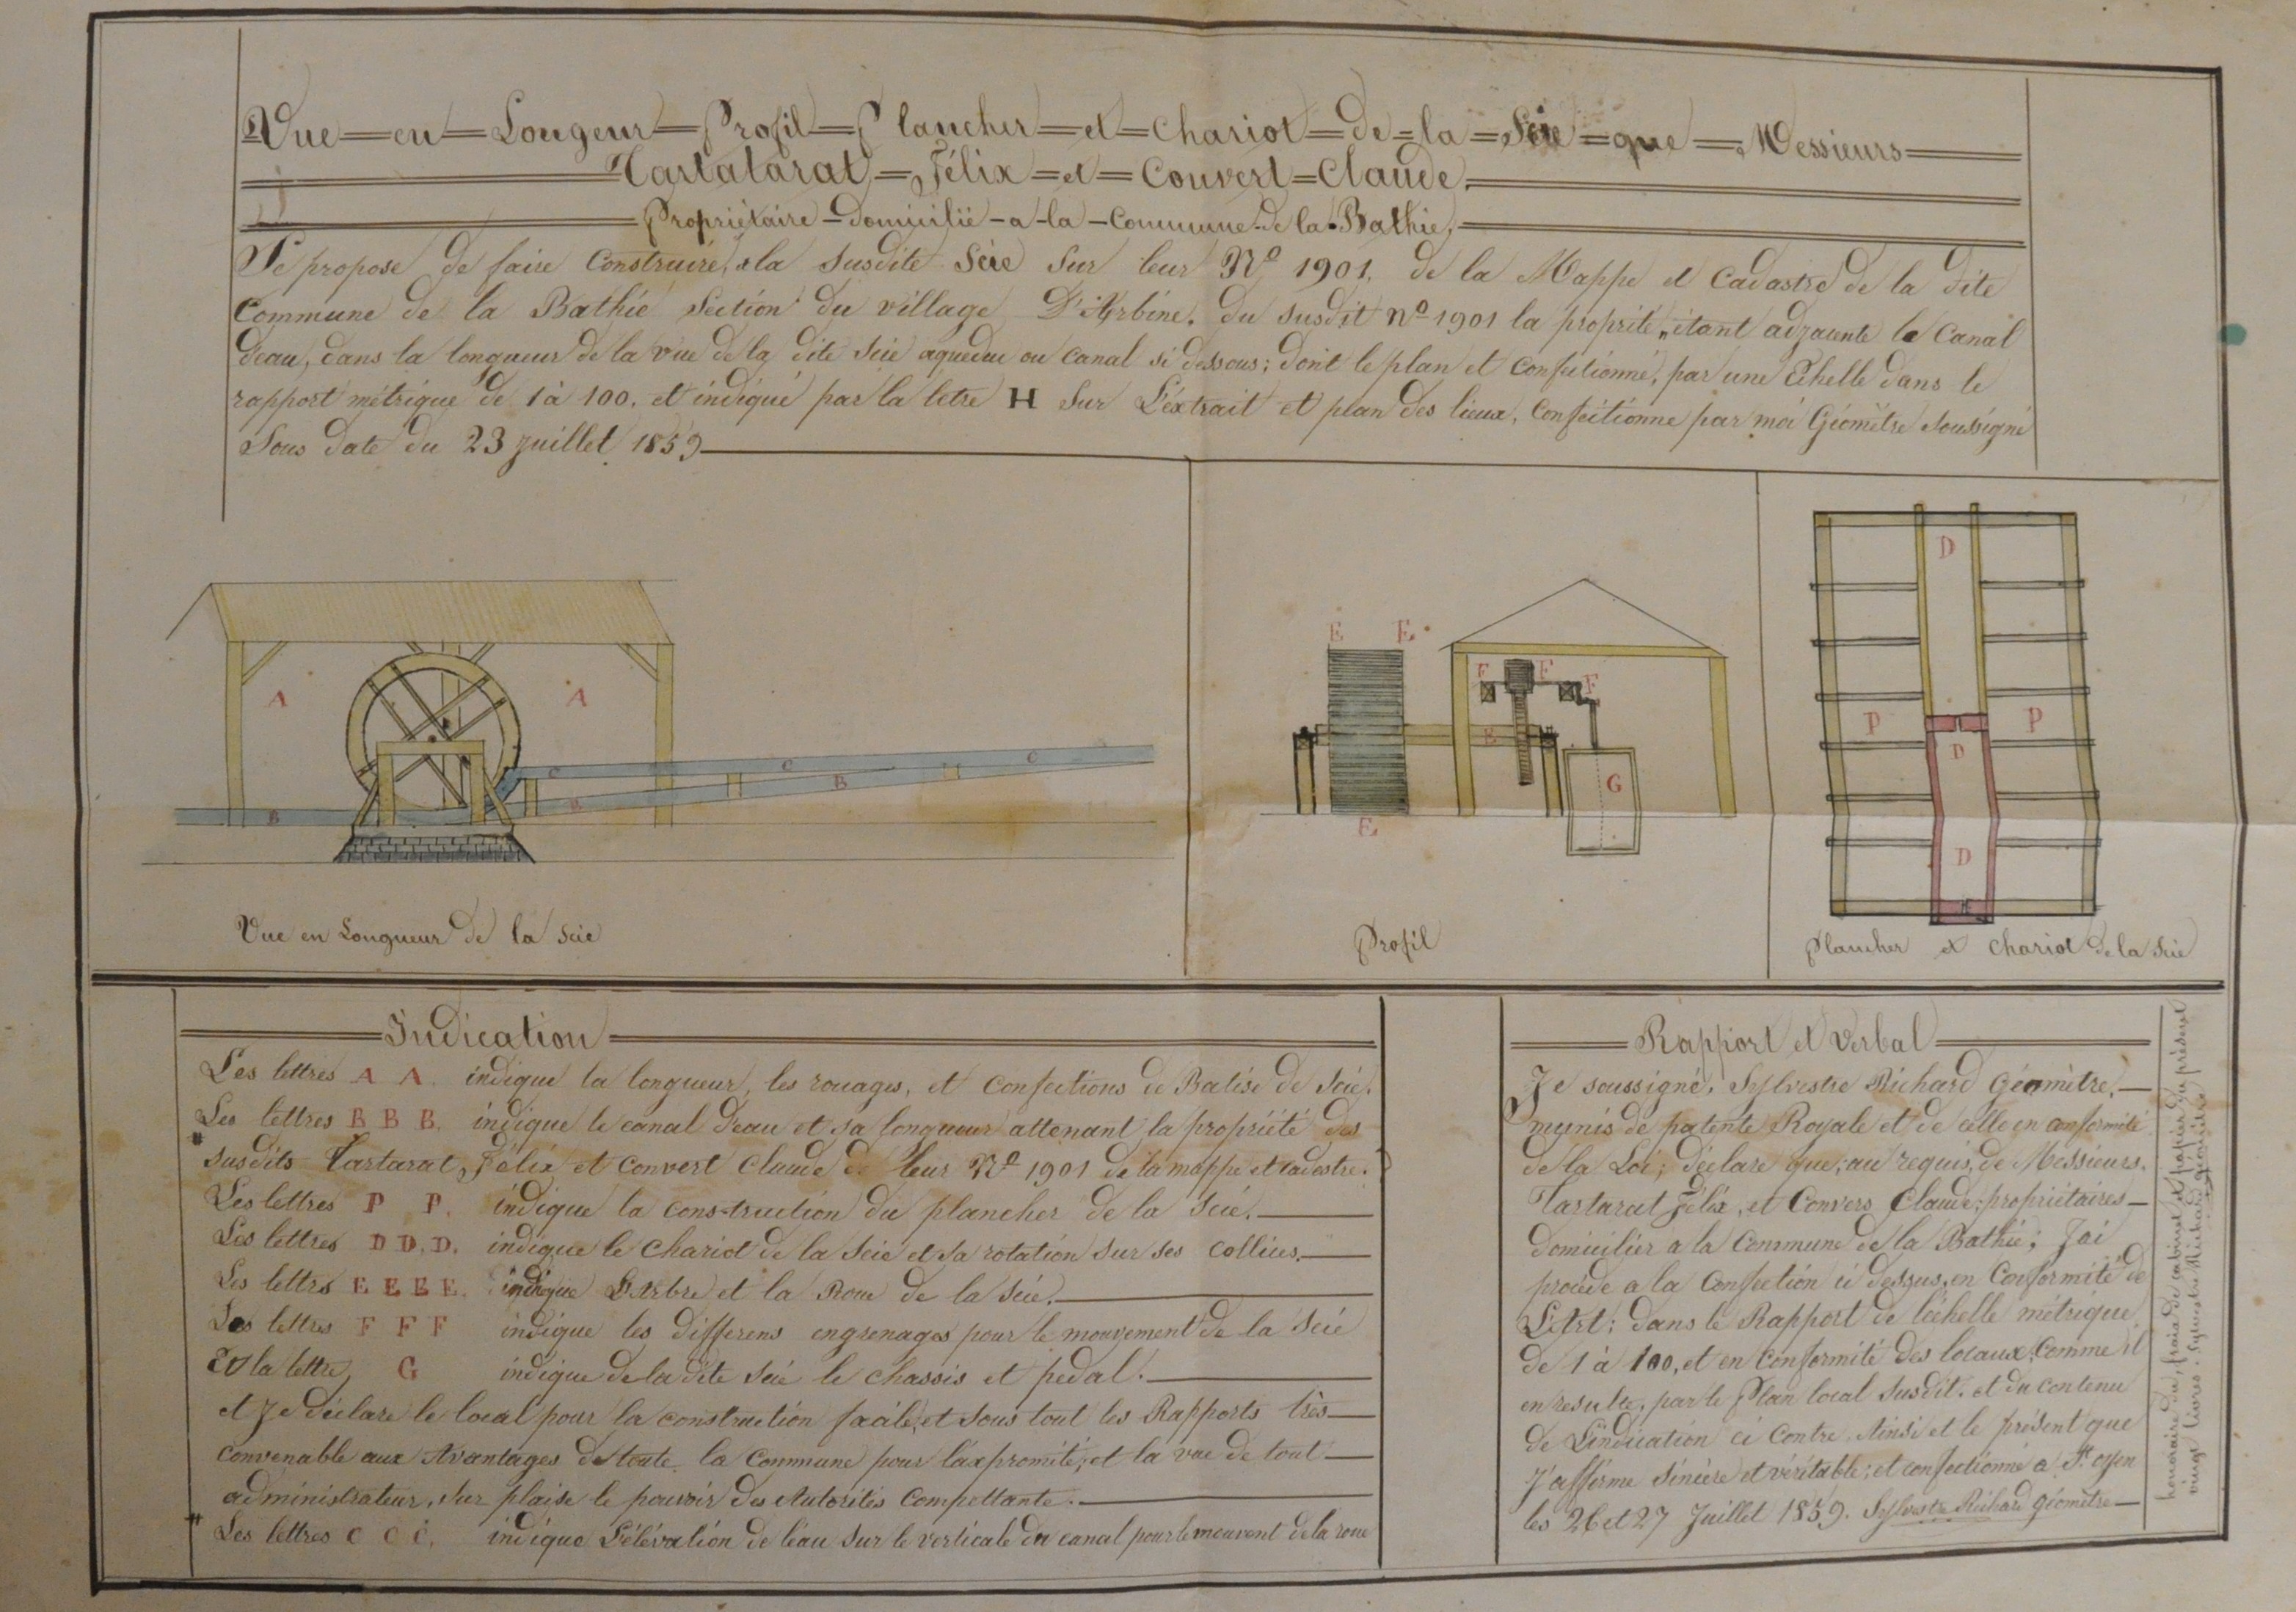 Vue en Longeur Profil Plancher et chariot de la Scie que Messieurs
Tartatarat Félix et Couvert Claude,
Propriétaire domicilié a la Commune de la Bathie,
Se propose de faire Construire, la susdite Scie sur leur Nº 1901, de la Mappe et Cadastre de la dite
Commune de la Bathie Section du village D'Arbine. du susdit nº 1901 la proprité, étant adjacente le Canal
d'eau, dans la longueur de la vue de la dite Scie aqueduc ou canal si dessous; dont le plan et Confectionné, par une Echelle dans le
rapport métrique de 1 à 100. et indiqué par la letre H sur L'éxtrait et plan des lieux, Confectionne par moi Géomètre soussigné
Sous date du 23 juillet 1859
A A
B B B
C C C
Vue en Longueur de la Scie
E E
F F F
E
G
E
Profil
D
P P
D
D
Plancher et chariot de la Scie
Indication
Les lettres A A. indique la longueur, les rouages, et Confections de Batise de Scie.
Les lettres B B B. indique le canal d'eau et sa longueur attenant la propriété des
susdits Tartarat, Félix et Convert Claude de leur Nº 1901 de la mappe et cadastre.
Les lettres P P. indique la construction du plancher de la Scie.
Les lettres D D. D. indique le Chariot de la Scie et sa rotation sur ses collices.
Les lettres E E E E. indique L'Arbre et la Roue de la Scie.
Les lettres F F F indique les differens engrenages pour le mouvement de la Scie
Et la lettre G indique de la dite Scie le chassis et pedal.
et Je déclare le local pour la construction facile, et sous tout les Rapports très
convenable aux Avantages de toute la Commune pour láxpromité, et la vue de tout
administrateur, sur plaise le pouvoir des Autorités Compettante.
Les lettres C C C. indique L'élévation de l'eau sur le verticale du canal pour le mouvent de la roue
Rapport et Verbal
Je soussigné, Sylvestre Richard Géomètre,
munis de patente Royale et de celle en conformité
de la Loi; déclare que, au requis, de Messieurs.
Tartarat Félix, et Convers Claude, propriétaires
domiciliér a la Commune de la Bathie; J'ai
procède a la Confection ci dessus, en Conformité de
L'Art; dans le Rapport de l'échelle métrique
de 1 à 100, et en Conformité des locaux, Comme il
en resulte, par le Plan local susdit. et du contenu
de L'indication ci Contre. Ainsi et le présent que
J'affirme Sincère et véritable; et confectionné a St. oyen
les 26 et 27 Juillet 1859. Sylvestre Richard Géomètre
honoraire du, frais de cabinet et papier du présent
vingt livres. Sylvestre Richard géomètre